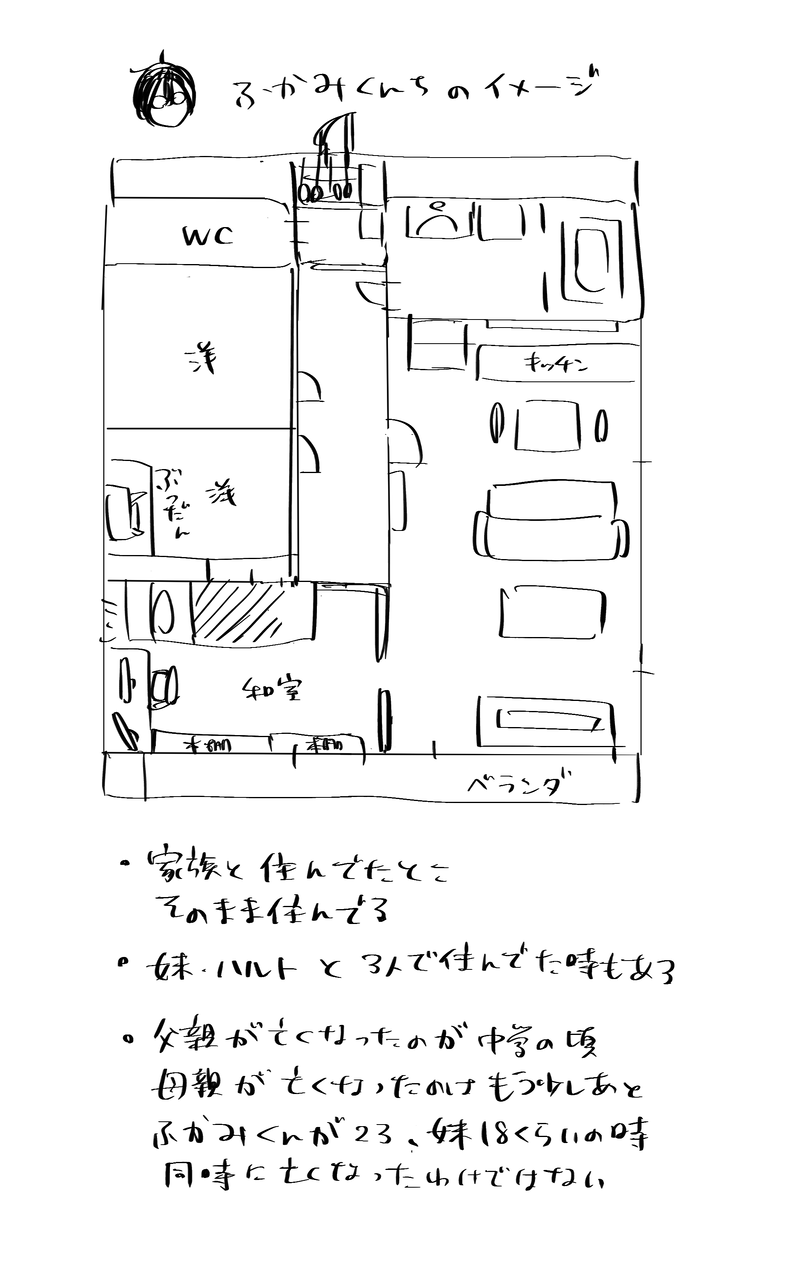 ふかみくんちのイメージ
WC
洋
キッチン
ぶつだん
洋
和室
本棚
本棚
ベランダ
・家族と住んでたとこ
そのまま住んでる
・妹・ハルトと3人で住んでた時もある
・父親が亡くなったのが中学の頃
母親が亡くなったのはもう少しあと
ふかみくんが23、妹18くらいの時
同時に亡くなったわけではない